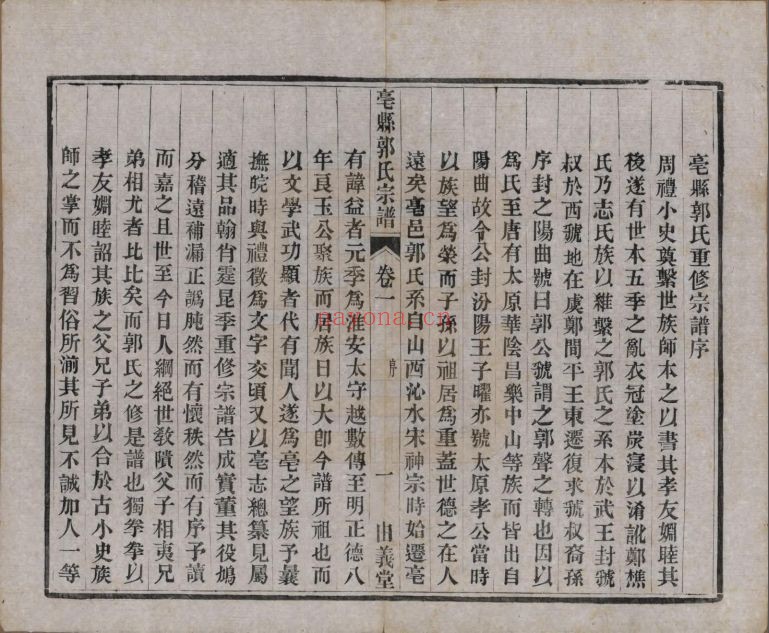 亳縣郭氏重修宗譜序
周禮小史奠繫世族師本之以書其孝友婣睦其
後遂有世本五季之亂衣冠塗炭寖以淆訛鄭樵
氏乃志氏族以維繫之郭氏之系本於武王封虢
叔於西虢地在虞鄭間平王東遷復求虢叔裔孫
序封之陽曲號曰郭公虢謂之郭聲之轉也因以
爲氏至唐有太原華陰昌樂中山等族而皆出自
陽曲故令公封汾陽王子曜亦號太原孝公當時
以族望爲榮而子孫以祖居爲重蓋世德之在人
遠矣亳邑郭氏系自山西沁水宋神宗時始遷亳
亳縣郭氏宗譜
卷一
序
一
由義堂
有諱益者元季爲淮安太守越數傳至明正德八
年良玉公聚族而居族日以大卽今譜所祖也而
以文學武功顯者代有聞人遂爲亳之望族予曩
撫皖時與禮徵爲文字交頃又以亳志總纂見屬
適其品翰肖霆昆季重修宗譜告成實董其役塢
分稽遠補漏正譌肫然而有懷秩然而有序予讀
而嘉之且世至今日人綱絕世敎隤父子相夷兄
弟相尤者比比矣而郭氏之修是譜也獨拳拳以
孝友婣睦詔其族之父兄子弟以合於古小史族
師之掌而不爲習俗所湔其所見不誠加人一等
nayonai.cn